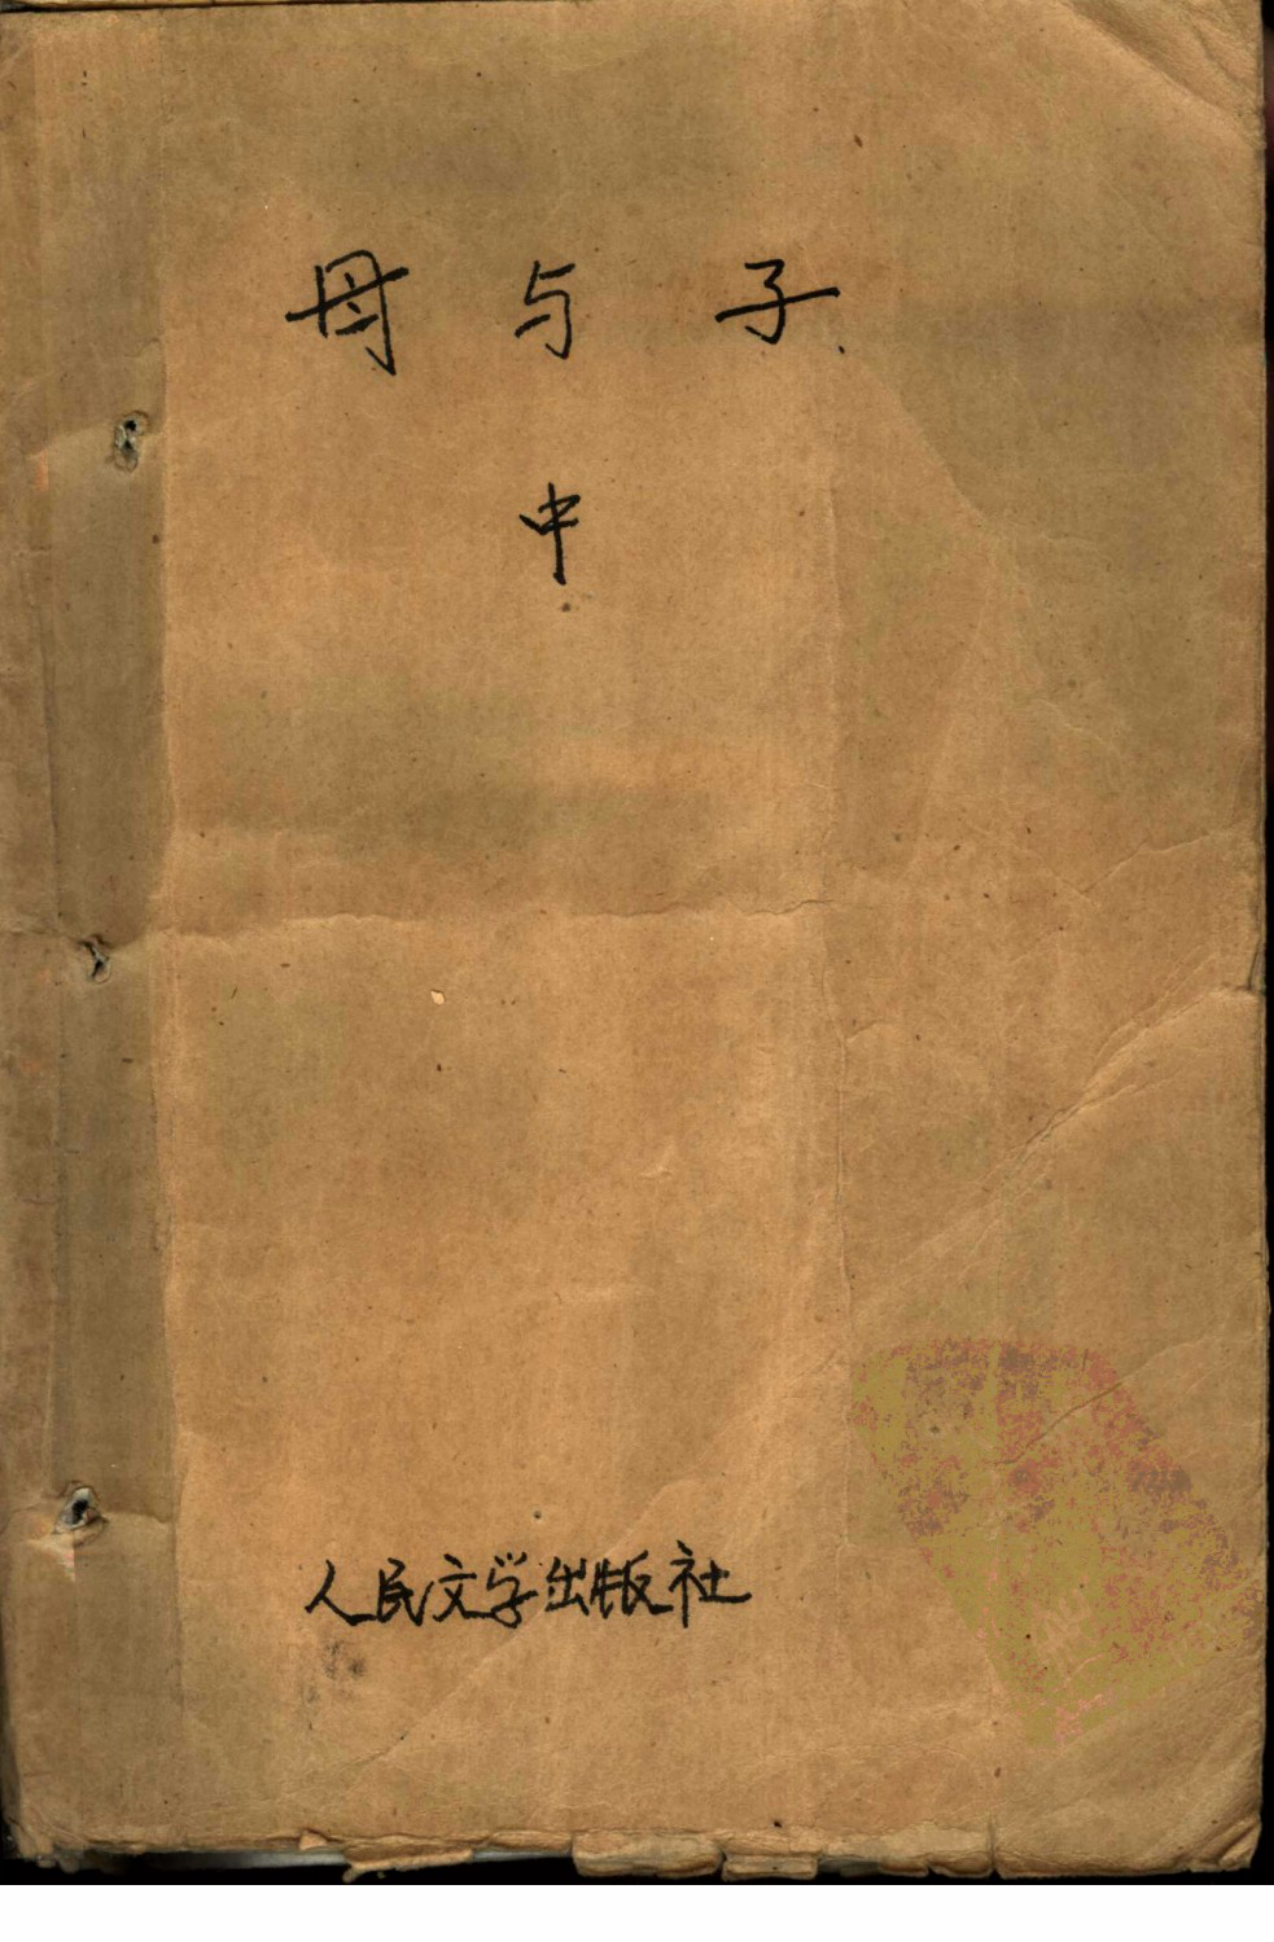 母与子
中
人民文学出版社